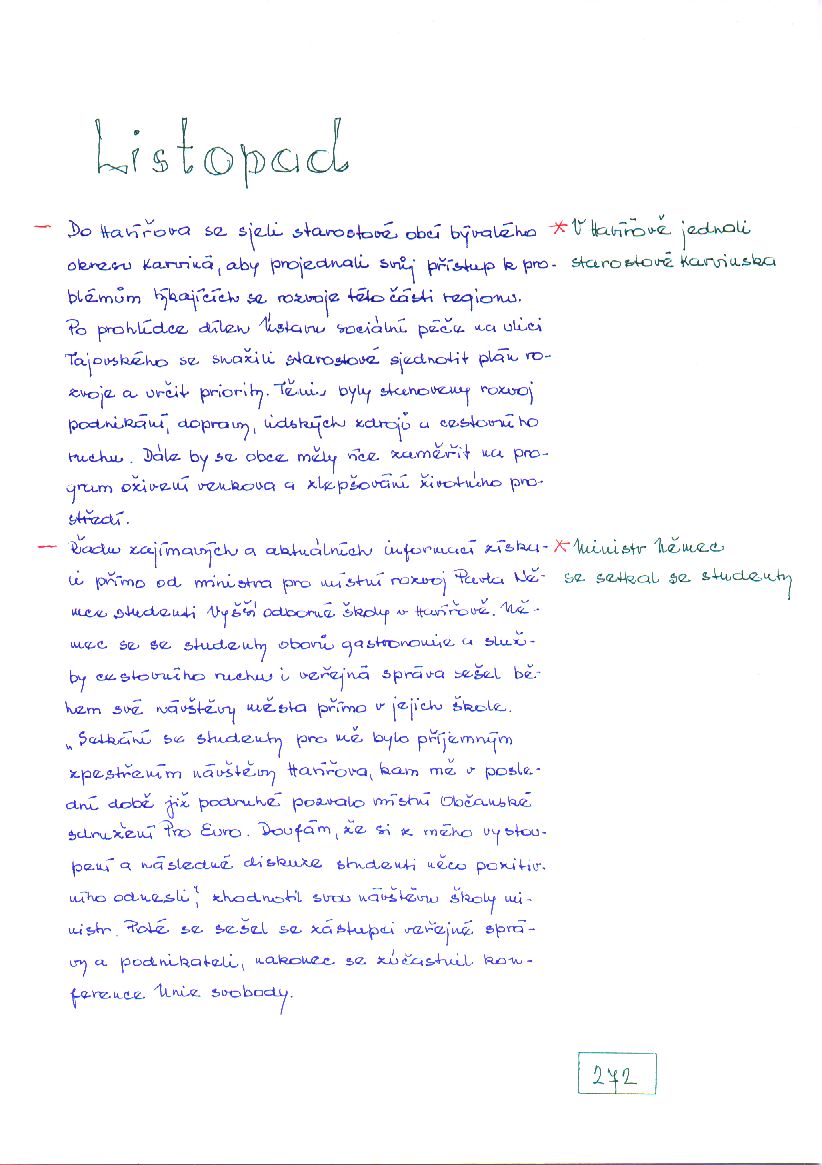 Listopad
– Do Havířova se sjeli starostové obcí bývalého
okresu Karviná, aby projednali svůj přístup k pro-
blémům týkajících se rozvoje této části regionu.
Po prohlídce dílen Ústavu sociální péče na ulici
Tajovského se snažili starostové sjednotit plán ro-
zvoje a určit priority. Těmi byly stanoveny rozvoj
podnikání, dopravy, lidských zdrojů a cestovního
ruchu. Dále by se obce měly více zaměřit na pro-
gram oživení venkova a zlepšování životního pro-
středí.
* V Havířově jednali
starostové Karvinska
– Řadu zajímavých a aktuálních informací získa-
li přímo od ministra pro místní rozvoj Pavla Ně-
mce studenti Vyšší odborné školy v Havířově. Ně-
mec se se studenty oborů gastronomie a služ-
by cestovního ruchu i veřejná správa sešel bě-
hem své návštěvy města přímo v jejich škole.
„Setkání se studenty pro mě bylo příjemným
zpestřením návštěvy Havířova, kam mě v posle-
dní době již podruhé pozvalo místní Občanské
sdružení Pro Euro. Doufám, že si z mého vystou-
pení a následné diskuze studenti něco pozitiv-
ního odnesli", zhodnotil svou návštěvu školy mi-
nistr. Poté se sešel se zástupci veřejné sprá-
vy a podnikateli, nakonec se zúčastnil kon-
ference Unie svobody.
* Ministr Němec
se setkal se studenty
272